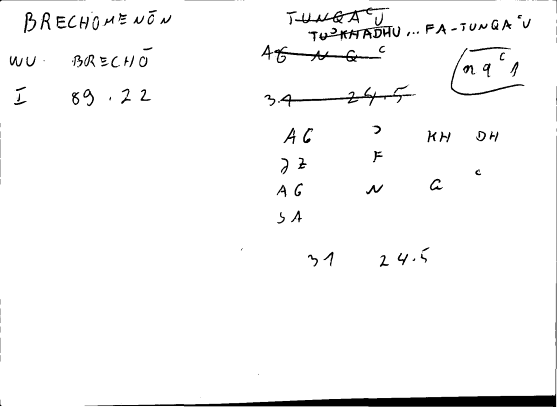 BRECHOMENŌN
WU. BRECHŌ
I 89.22
TUNQAᶜU
TUᵓKHADHU... FA-TUNQAᶜU
AG N Q C
nqᶜ1
31 24.5
AG ᵓ KH DH
JZ F
AG N Q ᶜ
3A
31 24.5